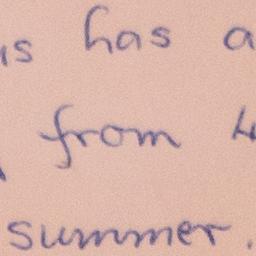 has a
from 4
summer.